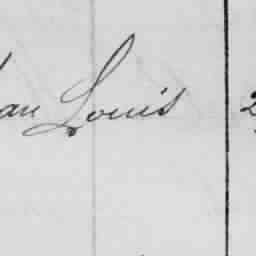 an Louis 2